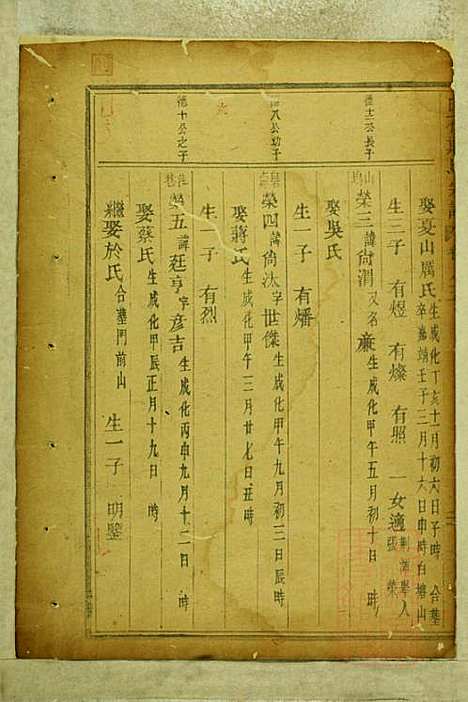 德十三公長子
娶夏山厲氏 生成化丁亥十一月初六日子時 合墓
卒嘉靖壬子三月十六日申時白塔山
生三子 有煜 有燦 有照 一女適
榮三諱尚渭 又名 生成化甲午五月初十日 時
娶吳氏
德八公幼子
生一子 有燔
榮四諱尚汰字世傑 生成化甲午九月初三日辰時
娶蔣氏 生成化甲午三月廿七日丑時
生一子 有烈
德十公之子
榮五諱廷亨字彥吉 生成化丙申九月十二日 時
娶蔡氏 生成化甲辰正月十九日 時
繼娶於氏 合墓門前山 生一子 明鑒